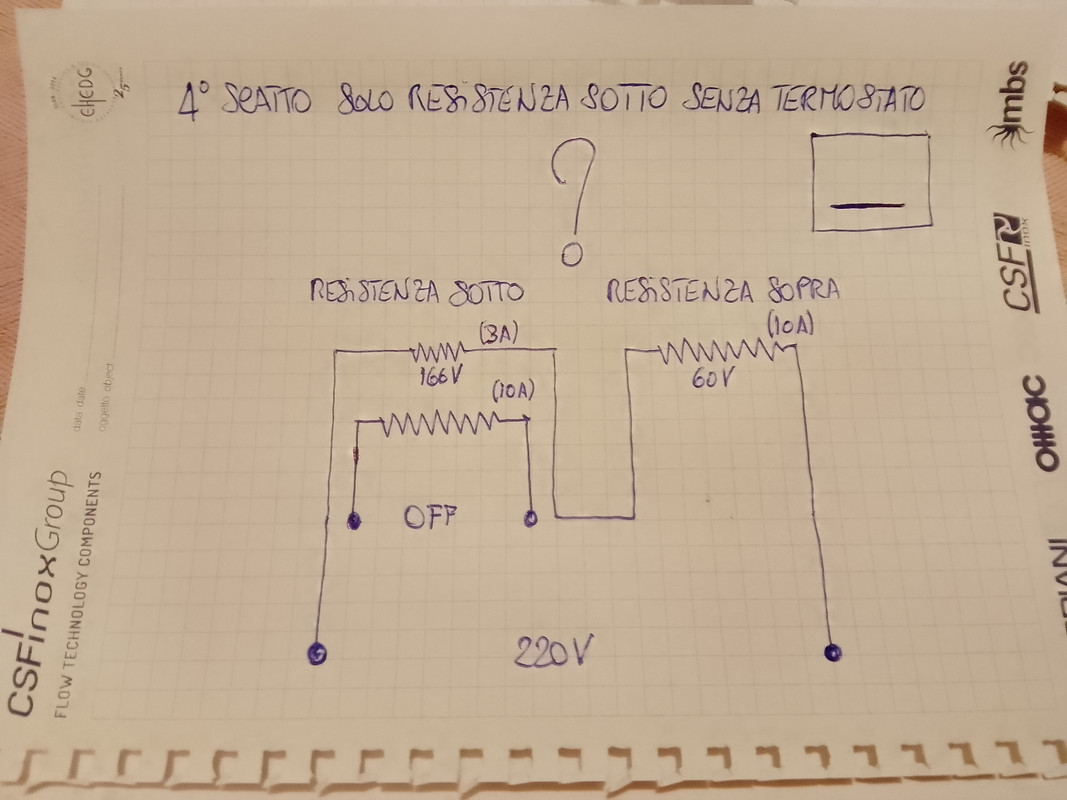 4° SCATTO SOLO RESISTENZA SOTTO SENZA TERMOSTATO
?
RESISTENZA SOTTO
RESISTENZA SOPRA
(3A)
(10A)
166V
60V
(10A)
OFF
220V
EHEDG
data date
oggetto object
CSFinoxGroup
FLOW TECHNOLOGY COMPONENTS
mbs
CSF inox
OMAC